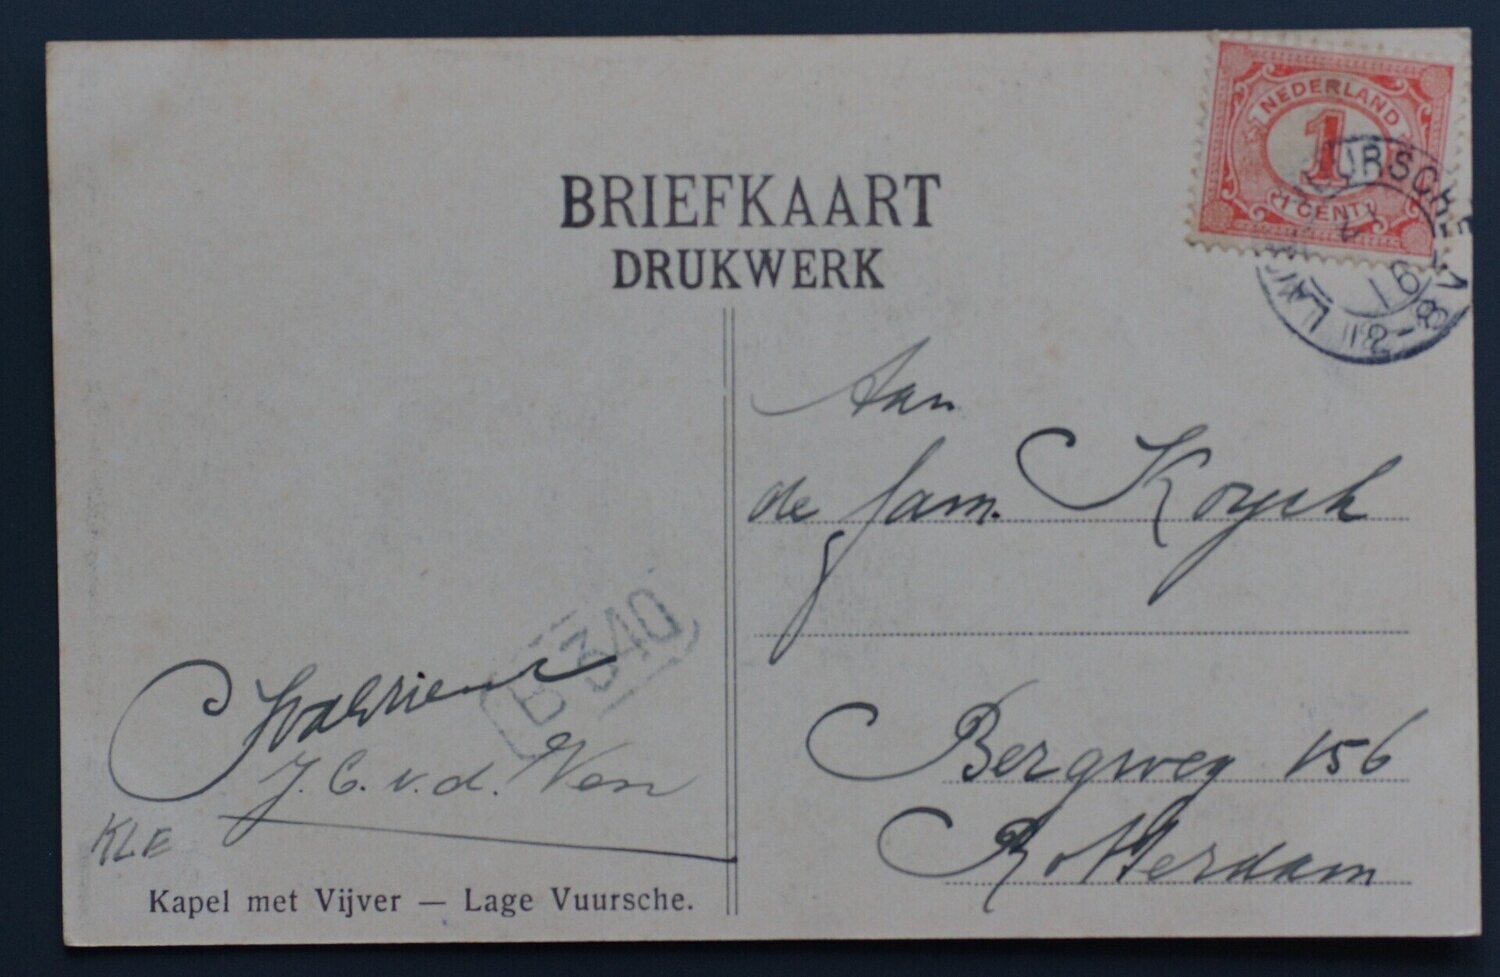 BRIEFKAART
DRUKWERK
NEDERLAND
1
1 CENT
URSCHE
16
Aan
de fam.
Bergweg 156
Rotterdam
B 340
J. C. v. d. Ven
KLE
Kapel met Vijver — Lage Vuursche.